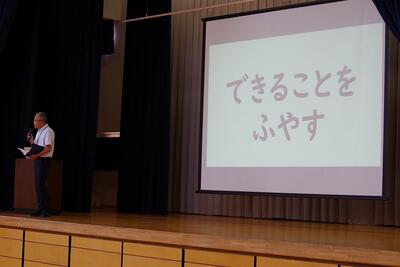 できることを
ふやす